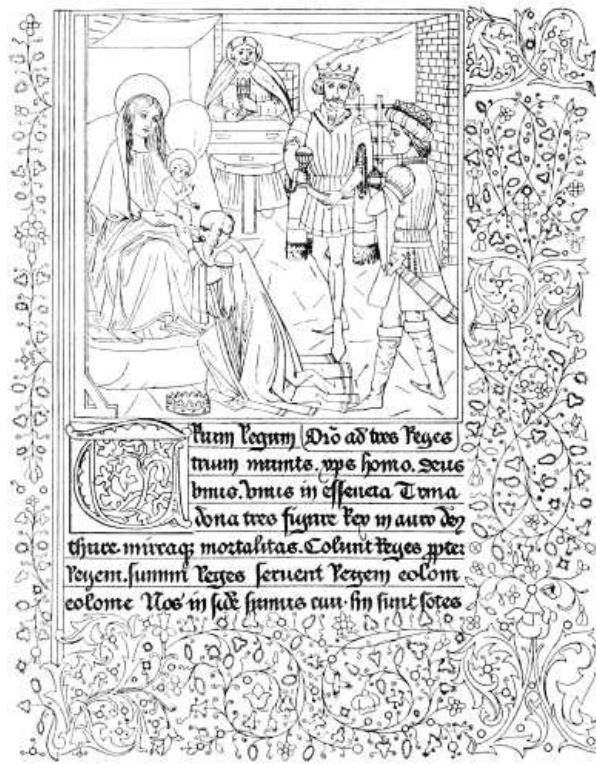 Trium Regum Orō ad tres Reges
trium munis. xps homo. Deus
vnus. vnus in essencia Trina
dona tres figure Rex in auro
thure mirraq; mortalitas. Colunt Reges ppter
Regem. summi Reges seruent Regem colom
colome Nos in side sumus sunt